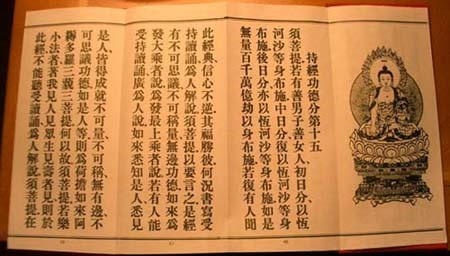 持經功德分第十五
須菩提若有善男子善女人初日分以恆
河沙等身布施中日分復以恆河沙等身
布施後日分亦以恆河沙等身布施如是
無量百千萬億劫以身布施若復有人聞
此經典信心不逆其福勝彼何況書寫受
持讀誦爲人解說須菩提以要言之是經
有不可思議不可稱量無邊功德如來爲
發大乘者說爲發最上乘者說若有人能
受持讀誦廣爲人說如來悉知是人悉見
是人皆得成就不可量不可稱無有邊不
可思議功德如是人等則爲荷擔如來阿
耨多羅三藐三菩提何以故須菩提若樂
小法者著我見人見眾生見壽者見則於
此經不能聽受讀誦爲人解說須菩提在